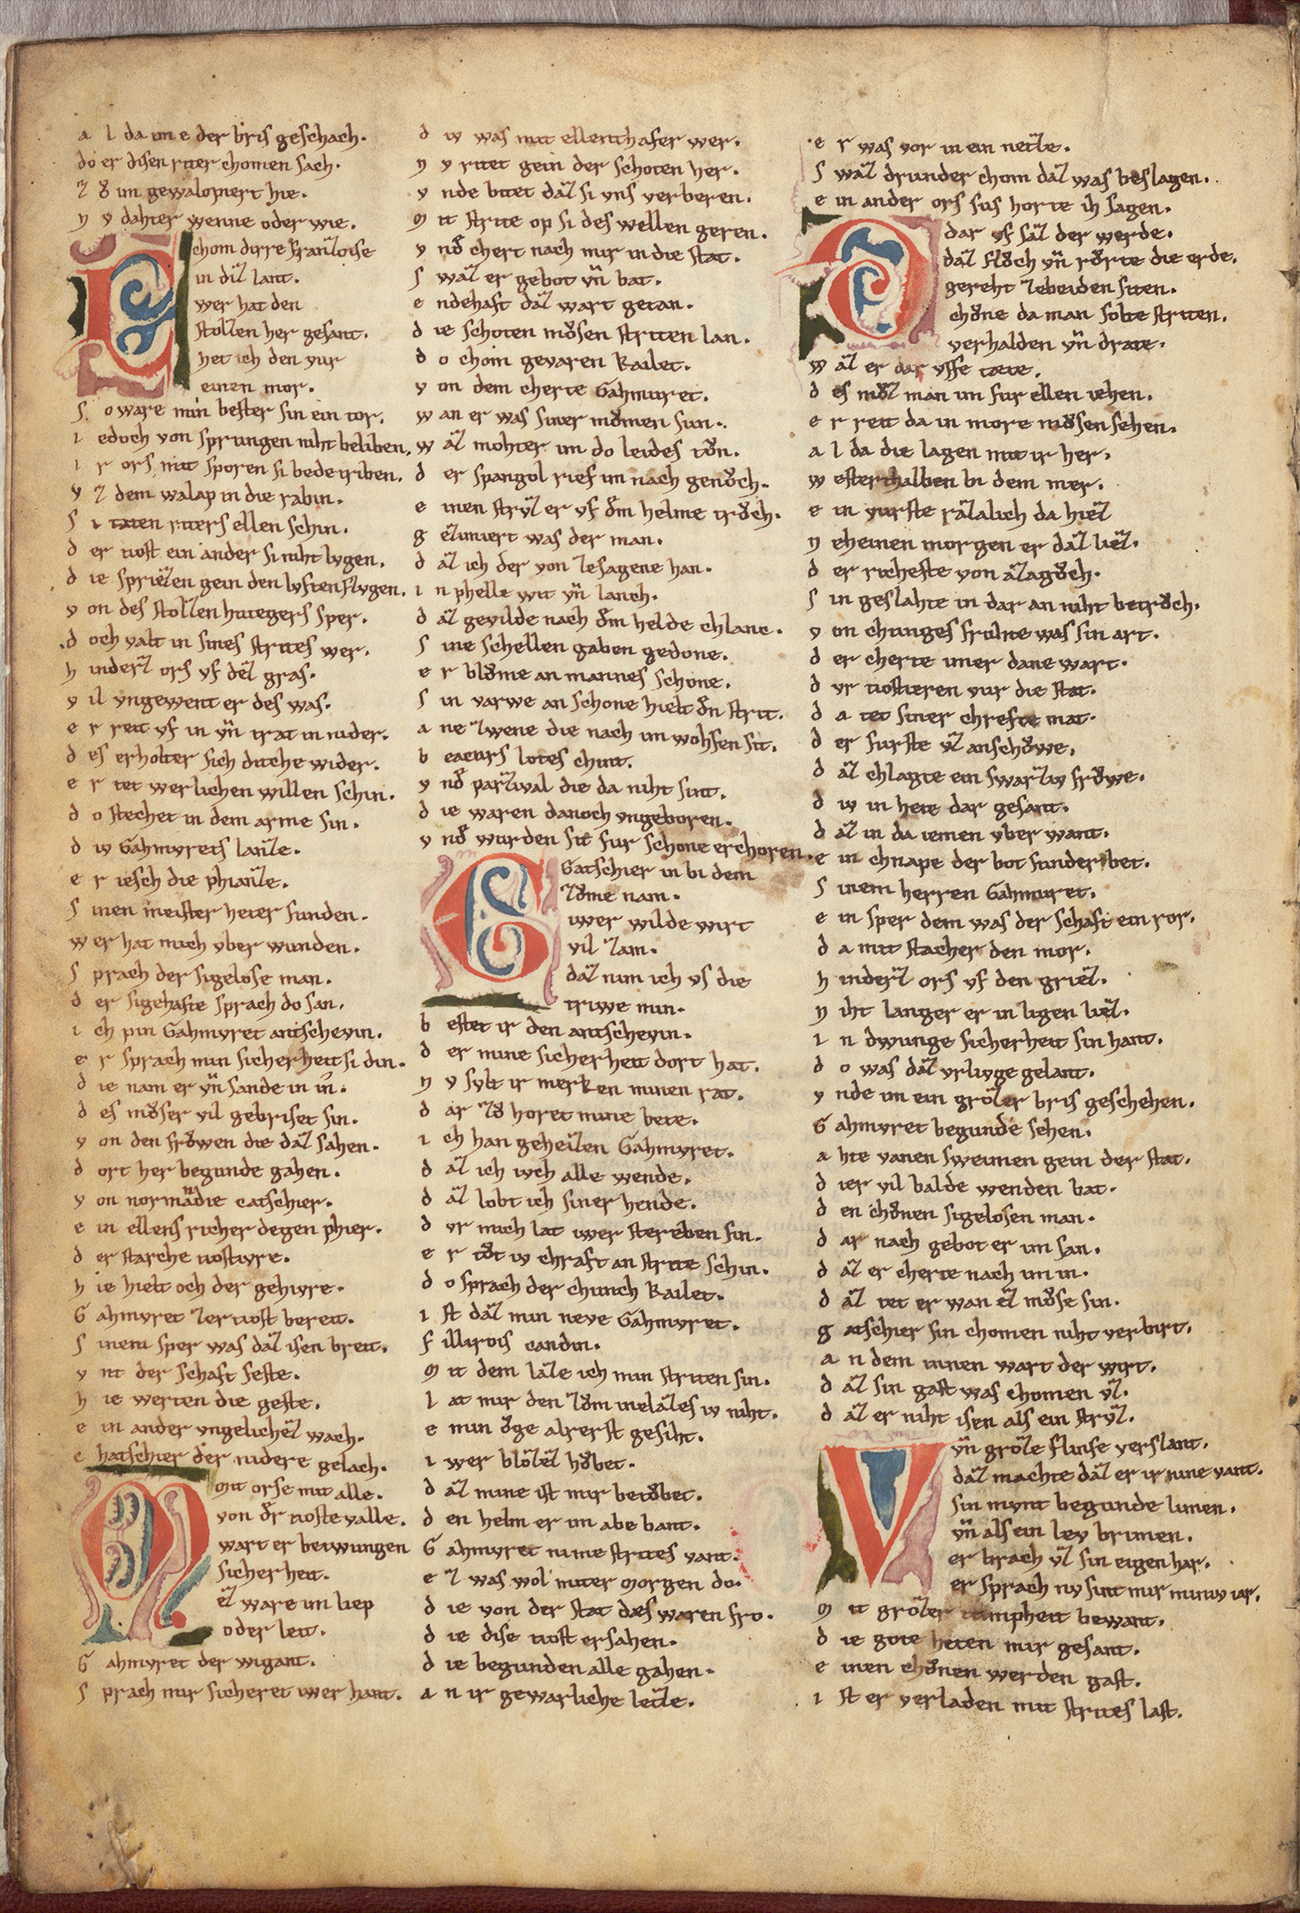 a l da im e der bris geschach.
do er disen riter chomen sach.
z ů im gewalopiert hie.
n v dahter wenne oder wie.
chom dirre franzoise
in diz lant.
wer hat den
stolzen her gesant.
het ich den vur
einen mor.
s o ware min bester sin ein tor.
i edoch von sprungen niht beliben.
i r ors mit sporen si bede triben.
v z dem walap in die rabin.
s i taten riters ellen schin.
d er tiost ein ander si niht lvgen.
d ie sprizen gein den lvften flvgen.
v on des stolzen hutegers sper.
d och valt in sines strites wer.
h inderz ors vf dez gras.
v il vngewent er des was.
e r reit vf in vñ trat in nider.
d es erholter sich dicche wider.
e r tet werlichen willen schin.
d o stechet in dem arme sin.
d iv Gahmvrets lanze.
e r iesch die phianze.
s inen meister heter funden.
w er hat mich vber wunden.
s prach der sigelose man.
d er sigehafte sprach do san.
i ch pin Gahmvret antschevin.
e r sprach min sicherheit si din.
d ie nam er vñ sande in in.
d es můser vil gebriset sin.
v on den frǒwen die daz sahen.
d ort her begunde gahen.
v on normandie catschier.
e in ellens richer degen phier.
d er starche tiostivre.
h ie hielt och der gehivre.
G ahmvret zer tiost bereit.
s inem sper was daz isen breit.
v nt der schaft feste.
h ie werten die geste.
e in ander vngelichez wach.
c hatschier der nidere gelach.
Mit orse mit alle.
von ďr tioste valle.
wart er betwungen
sicherheit.
ez ware im liep
oder leit.
G ahmvret der wigant.
s prach mir sicheret iwer hant.
d iv was mit ellenthafer wer.
n v ritet gein der schoten her.
v nde bitet daz si vns verberen.
m it strite op si des wellen geren.
v nď chert nach mir in die stat.
s waz er gebot vñ bat.
e ndehaft daz wart getan.
d ie schoten můsen striten lan.
d o chom gevaren Kailet.
v on dem cherte Gahmuret.
w an er was siner můmen sun.
w az mohter im do leides tůn.
d er spangol rief im nach genůch.
e inen strvz er vf ďm helme trůch.
g ezimiert was der man.
d az ich der von zesagene han.
i n phelle wit vñ lanch.
d az gevilde nach ďm helde chlanc.
s ine schellen gaben gedone.
e r blůme an mannes schone.
s in varwe an schone hielt ďn strit.
a ne zwene die nach im wohsen sit.
b eacurs lotes chint.
v nď parzival die da niht sint.
d ie waren danoch vngeboren.
v nď wurden sit fur schone erchoren.
Gatschier in bi dem
zǒme nam.
iwer wilde wirt
vil zam.
daz nim ich vf die
triwe min.
b estet ir den antschevin.
d er mine sicherheit dort hat.
n v svlt ir merken minen rat.
d ar zů horet mine bete.
i ch han geheizen Gahmvret.
d az ich ivch alle wende.
d az lobt ich siner hende.
d vr mich lat iwer streben sin.
e r tůt iv chraft an strite schin.
d o sprach der chunch Kailet.
i st daz min neve Gahmvret.
f illirois candin.
m it dem laze ich min striten sin.
l at mir den zǒm inelazes iv niht.
e min ǒge alrerst gesiht.
i wer blozez hǒbet.
d az mine ist mir betǒbet.
d en helm er im abe bant.
G ahmvret nime strites vant.
e z was wol miter morgen do.
d ie von der stat des waren fro.
d ie dise tiost ersahen.
d ie begunden alle gahen.
a n ir gewarliche letze.
e r was vor in ein netze.
s waz drunder chom daz was beslagen.
e in ander ors sus horte ih sagen.
dar vf saz der werde.
daz flǒch vñ rǒrte die erde.
gereht zebeiden siten.
chůne da man solte striten.
verhalden vñ drate.
w az er dar vffe tæte.
d es můz man im fur ellen iehen.
e r reit da in more můsen sehen.
a l da die lagen mit ir her.
w esterthalben bi dem mer.
e in vurste razalich da hiez
n eheinen morgen er daz liez.
d er richeste von azagǒch.
s in geslahte in dar an niht betrǒch.
v on chunges fruhte was sin art.
d er cherte imer dane wart.
d vr tiostieren vur die stat.
d a tet siner chrefte mat.
d er furste vz anschǒwe.
d az chlagte ein swarziv frǒwe.
d iv in hete dar gesant.
d az in da iemen vber want.
e in chnape der bot sunder bet.
s inem herren Gahmuret.
e in sper dem was der schaft ein ror.
d a mit stacher den mor.
h inderz ors vf den griez.
n iht langer er in ligen liez.
i n dwunge sicherheit sin hant.
d o was daz vrlivge gelant.
v nde im ein grozer bris geschehen.
G ahmvret begunde sehen.
a hte vanen sweimen gein der stat.
d ier vil balde wenden bat.
d en chůnen sigelosen man.
d ar nach gebot er im san.
d az er cherte nach im in.
d az tet er wan ez můse sin.
g atschier sin chomen niht verbirt.
a n dem innen wart der wirt.
d az sin gast was chomen vz.
d az er niht isen als ein strvz.
Vñ groze flinse verslant.
daz machte daz er ir nine vant.
sin mvnt begunde limen.
vñ als ein lev brimen.
er brach vz sin eigen har.
er sprach nv sint mir miniv iar.
m it grozer tumpheit bewant.
d ie gote heten mir gesant.
e inen chůnen werden gast.
i st er verladen mit strites last.